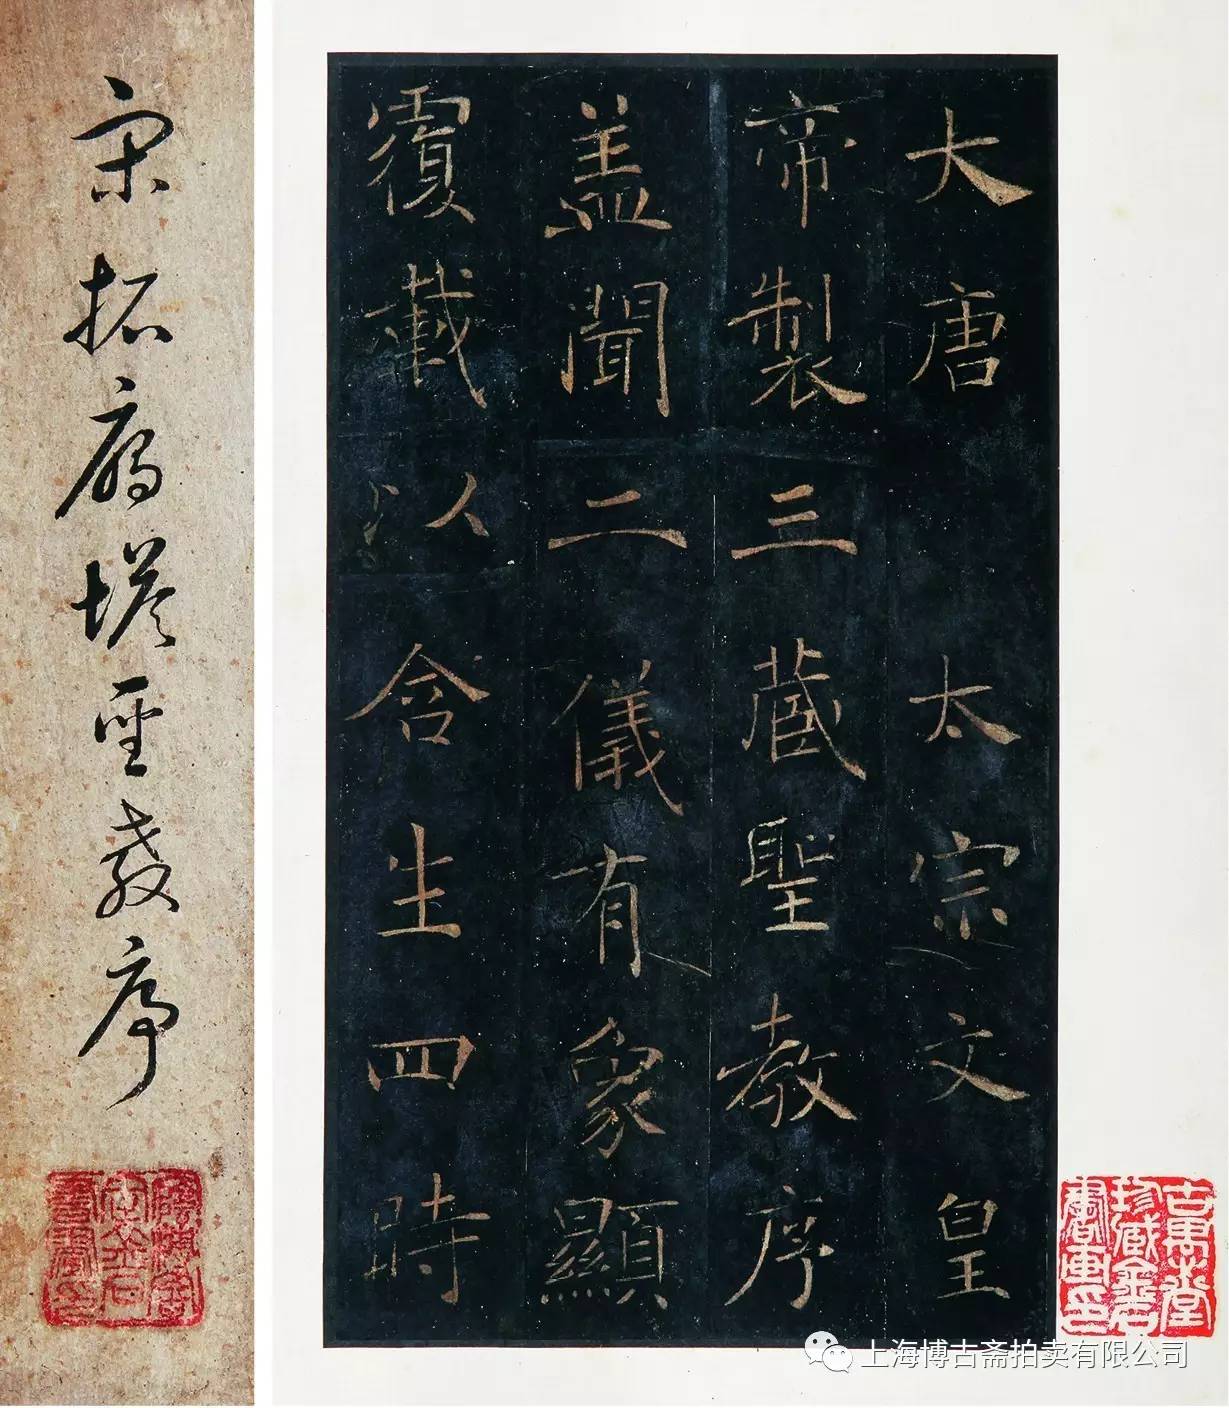 宋拓雁塔聖教序
大唐太宗文皇
帝製三藏聖教序
盖聞二儀有象顯
覆載以含生四時
古萬堂
珍藏金石
書畫印
上海博古斋拍卖有限公司